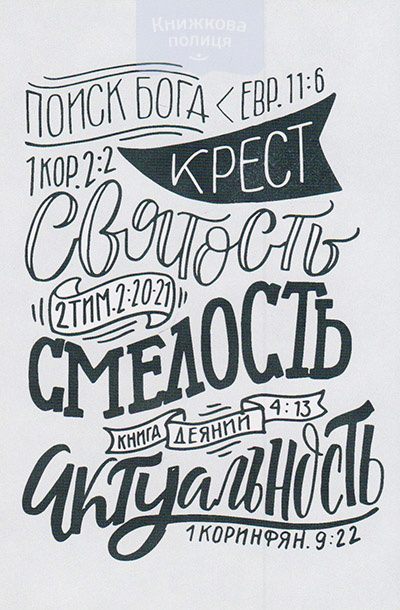 Книжкова
полиця
ПОИСК БОГА < ЕВР. 11:6
1 КОР. 2:2 КРЕСТ
Святость
2 ТИМ. 2:20-21
СМЕЛОСТЬ
КНИГА ДЕЯНИЙ 4:13
Актуальность
1 КОРИНФЯН. 9:22